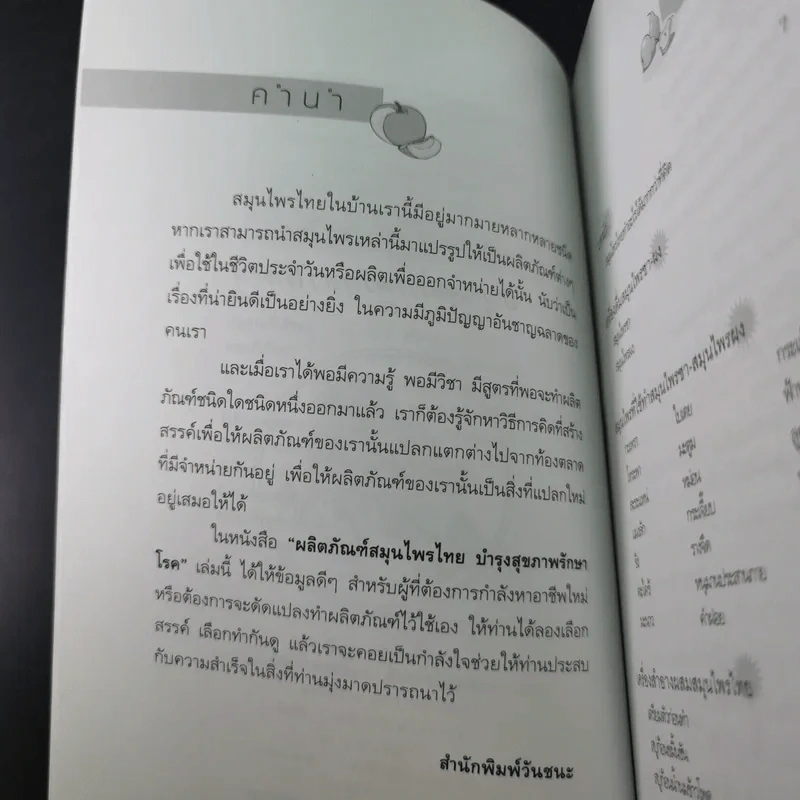 คำนำ
สมุนไพรไทยในบ้านเรานี้มีอยู่มากมายหลากหลายชนิด
หากเราสามารถนำสมุนไพรเหล่านี้มาแปรรูปให้เป็นผลิตภัณฑ์ต่างๆ
เพื่อใช้ในชีวิตประจำวันหรือผลิตเพื่อออกจำหน่ายได้นั้น นับว่าเป็น
เรื่องที่น่ายินดีเป็นอย่างยิ่ง ในความมีภูมิปัญญาอันชาญฉลาดของ
คนเรา
และเมื่อเราได้พอมีความรู้ พอมีวิชา มีสูตรที่พอจะทำผลิต
ภัณฑ์ชนิดใดชนิดหนึ่งออกมาแล้ว เราก็ต้องรู้จักหาวิธีการคิดที่สร้าง
สรรค์เพื่อให้ผลิตภัณฑ์ของเรานั้นแปลกแตกต่างไปจากท้องตลาด
ที่มีจำหน่ายกันอยู่ เพื่อให้ผลิตภัณฑ์ของเรานั้นเป็นสิ่งที่แปลกใหม่
อยู่เสมอให้ได้
ในหนังสือ "ผลิตภัณฑ์สมุนไพรไทย บำรุงสุขภาพรักษา
โรค" เล่มนี้ ได้ให้ข้อมูลดีๆ สำหรับผู้ที่ต้องการกำลังหาอาชีพใหม่
หรือต้องการจะดัดแปลงทำผลิตภัณฑ์ไว้ใช้เอง ให้ท่านได้ลองเลือก
สรรค์ เลือกทำกันดู แล้วเราจะคอยเป็นกำลังใจช่วยให้ท่านประสบ
กับความสำเร็จในสิ่งที่ท่านมุ่งมาดปรารถนาไว้
สำนักพิมพ์วันชนะ
สมุนไพรที่ใช้ทำสมุนไพรชา-สมุนไพรผง
ใบเตย
มะตูม
หม่อน
กระเจี๊ยบ
รางจืด
หนุมานประสานกาย
คำฝอย
เครื่องสำอางผสมสมุนไพรไทย